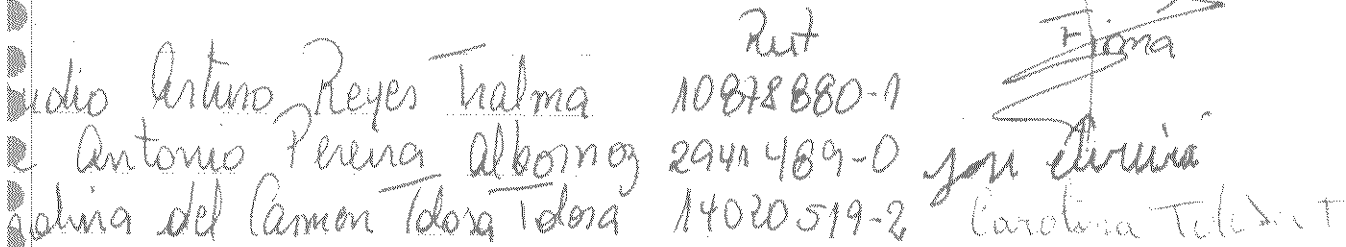 Rut Firma
udio Arturo Reyes Tralma 10878880-1
e Antonio Pereira Albornoz 2941489-0
rolina del Carmen Tolosa Tolosa 14020519-2 Carolina Tolosa T